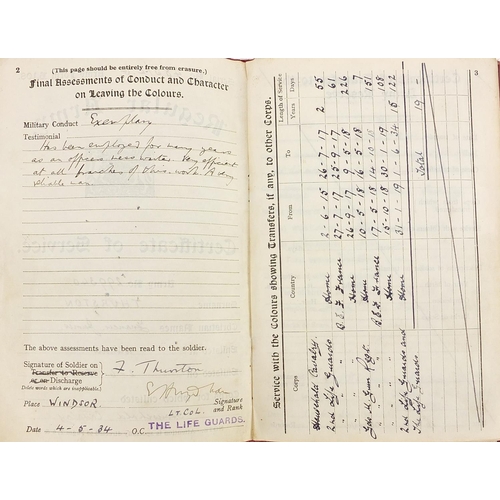 2
(This page should be entirely free from erasure.)
Final Assessments of Conduct and Character
on Leaving the Colours.
Military Conduct Exemplary
Testimonial
Has been employed for many years
as an officers mess waiter. Very efficient
at all branches of this work. A very
reliable man.
The above assessments have been read to the soldier.
Signature of Soldier on
Transfer to Reserve
or on Discharge
F. Thurston
(Delete words which are inapplicable.)
Signature
and Rank
Place WINDSOR
LT. COL.
Date 4-5-34 O.C. THE LIFE GUARDS.
3
Service with the Colours showing Transfers, if any, to other Corps.
Corps Country From To Length of Service
Years Days
Household Cavalry
2nd Life Guards Home 2-6-15 26-7-17 2 55
" " B.E.F. France 27-7-17 25-9-17 61
" " Home 26-9-17 9-5-18 226
Gds. M. Gun Regt. Home 10-5-18 16-5-18 7
" " B.E.F. France 17-5-18 14-10-18 151
" " Home 15-10-18 30-1-19 108
2nd Life Guards and Home 31-1-19 1-6-34 15 122
The Life Guards
Total 19 -